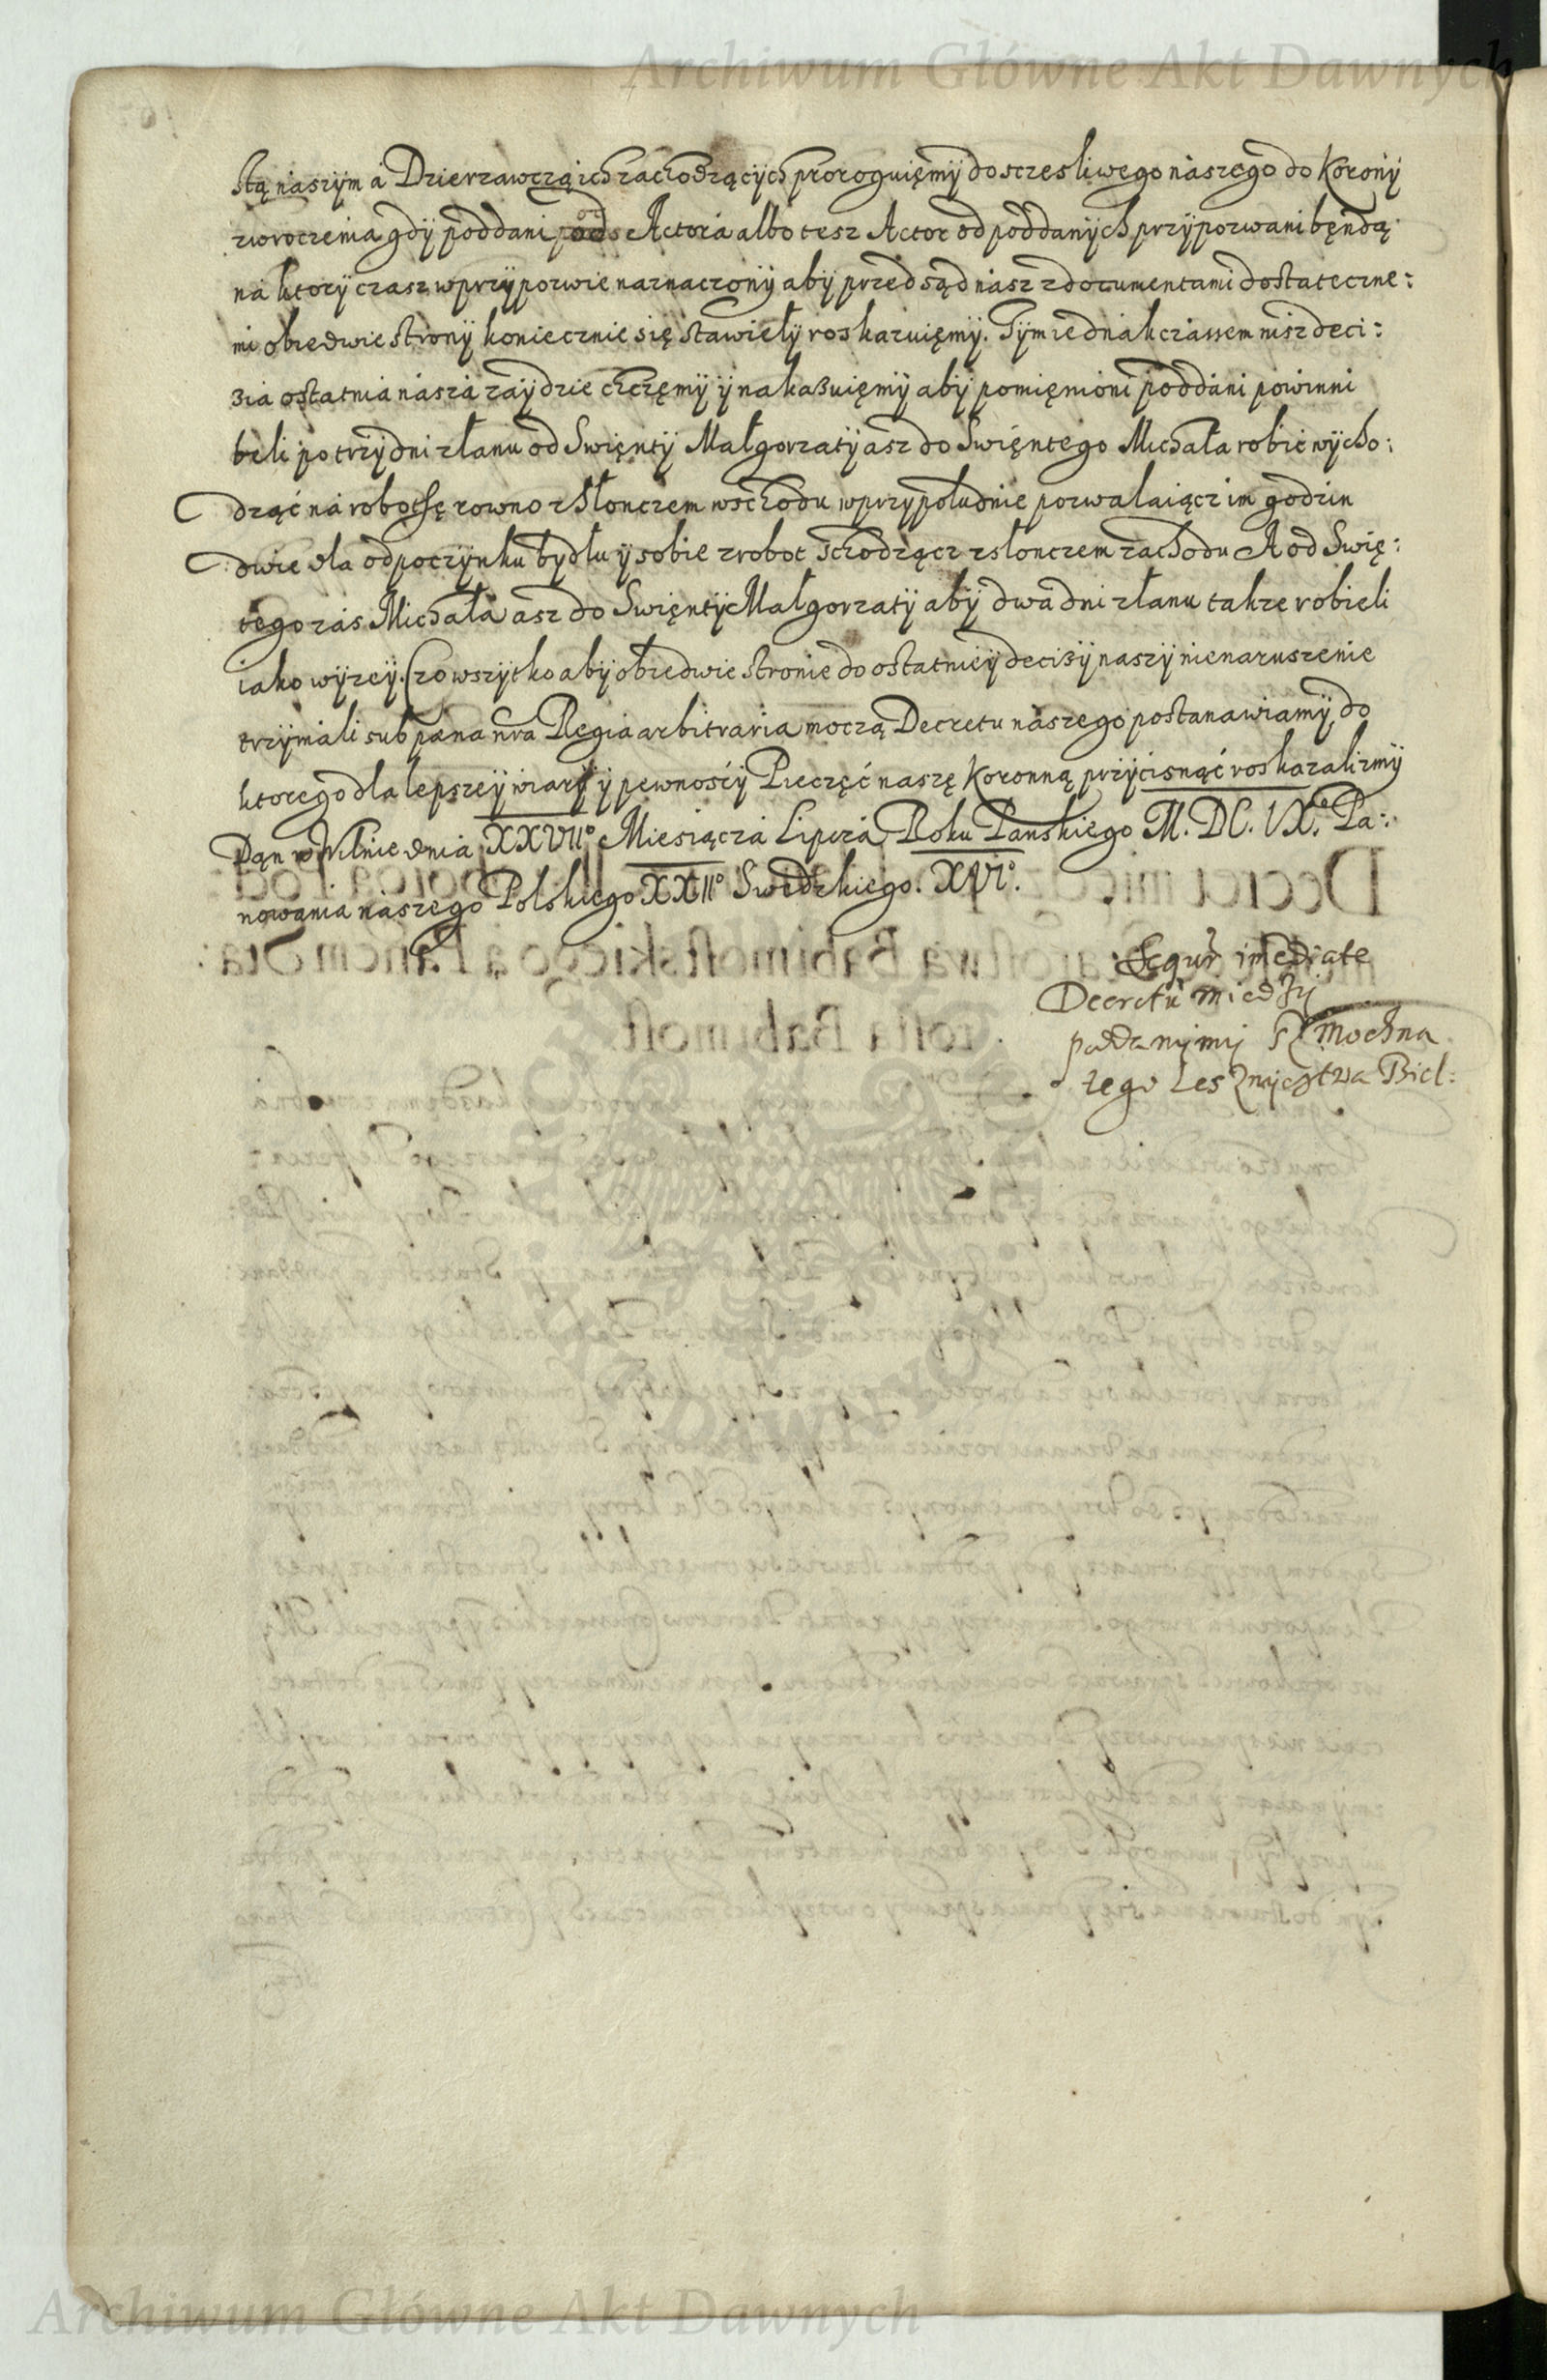 Archiwum Główne Akt Dawnych
stą naszÿm á Dzierzawczą ich zachodzącÿch proroguięmÿ do sczesliwego nászego do Koronÿ
zwroczenia gdÿ poddani od Actorá albo tesz Actor od poddanÿch przÿpozwani bęndą
na ktorÿ czasz w przÿpozwie naznaczonÿ abÿ przed sąd nász z documentami dostateczne:
mi obiedwie stronÿ koniecznie się stawiełÿ roskazuięmÿ. Tÿm iednák czássem nisz deci:
zia ostatnia nászá zaÿdzie chcęmÿ ÿ nakazuięmÿ abÿ pomięnioni poddáni powinni
beli po trzÿ dni z łanu od Swięntÿ Małgorzatÿ asz do Swięntego Michała robić wÿcho:
dząć ná robothę rowno z Słonczem wschodu w przÿpołudnie pozwalaiącz im godzin
dwie dla odpoczÿnku bÿdłu ÿ sobie z robot schodzącz z słonczem zachodu A od Swię:
tego zás Michałá asz do Swięntÿ Małgorzatÿ abÿ dwa dni z łanu takze robieli
iako wÿzeÿ. Czo wszÿtko abÿ obiedwie stronie do ostatnieÿ decizÿ naszÿ nienaruszenie
trzÿmáli sub pæna nra Regia arbitraria moczą Decretu nászego postanawiamÿ, do
ktorego dla lepszeÿ wiarÿ ÿ pewnośćÿ Pieczęć naszę Koronną przÿcisnąć roskazalizmÿ
Dan w Wilnie dnia XXVII° Miesiącza Lipczá Roku Panskiego M. DC. IX.° Pa:
nowania naszego Polskiego XXII° Swedzkiego. XVI°.
Sequr imediate
Decretu miedzÿ
poddanÿmÿ Sz Mochna
tego Lesznÿcztwa Biel:
Archiwum Główne Akt Dawnych